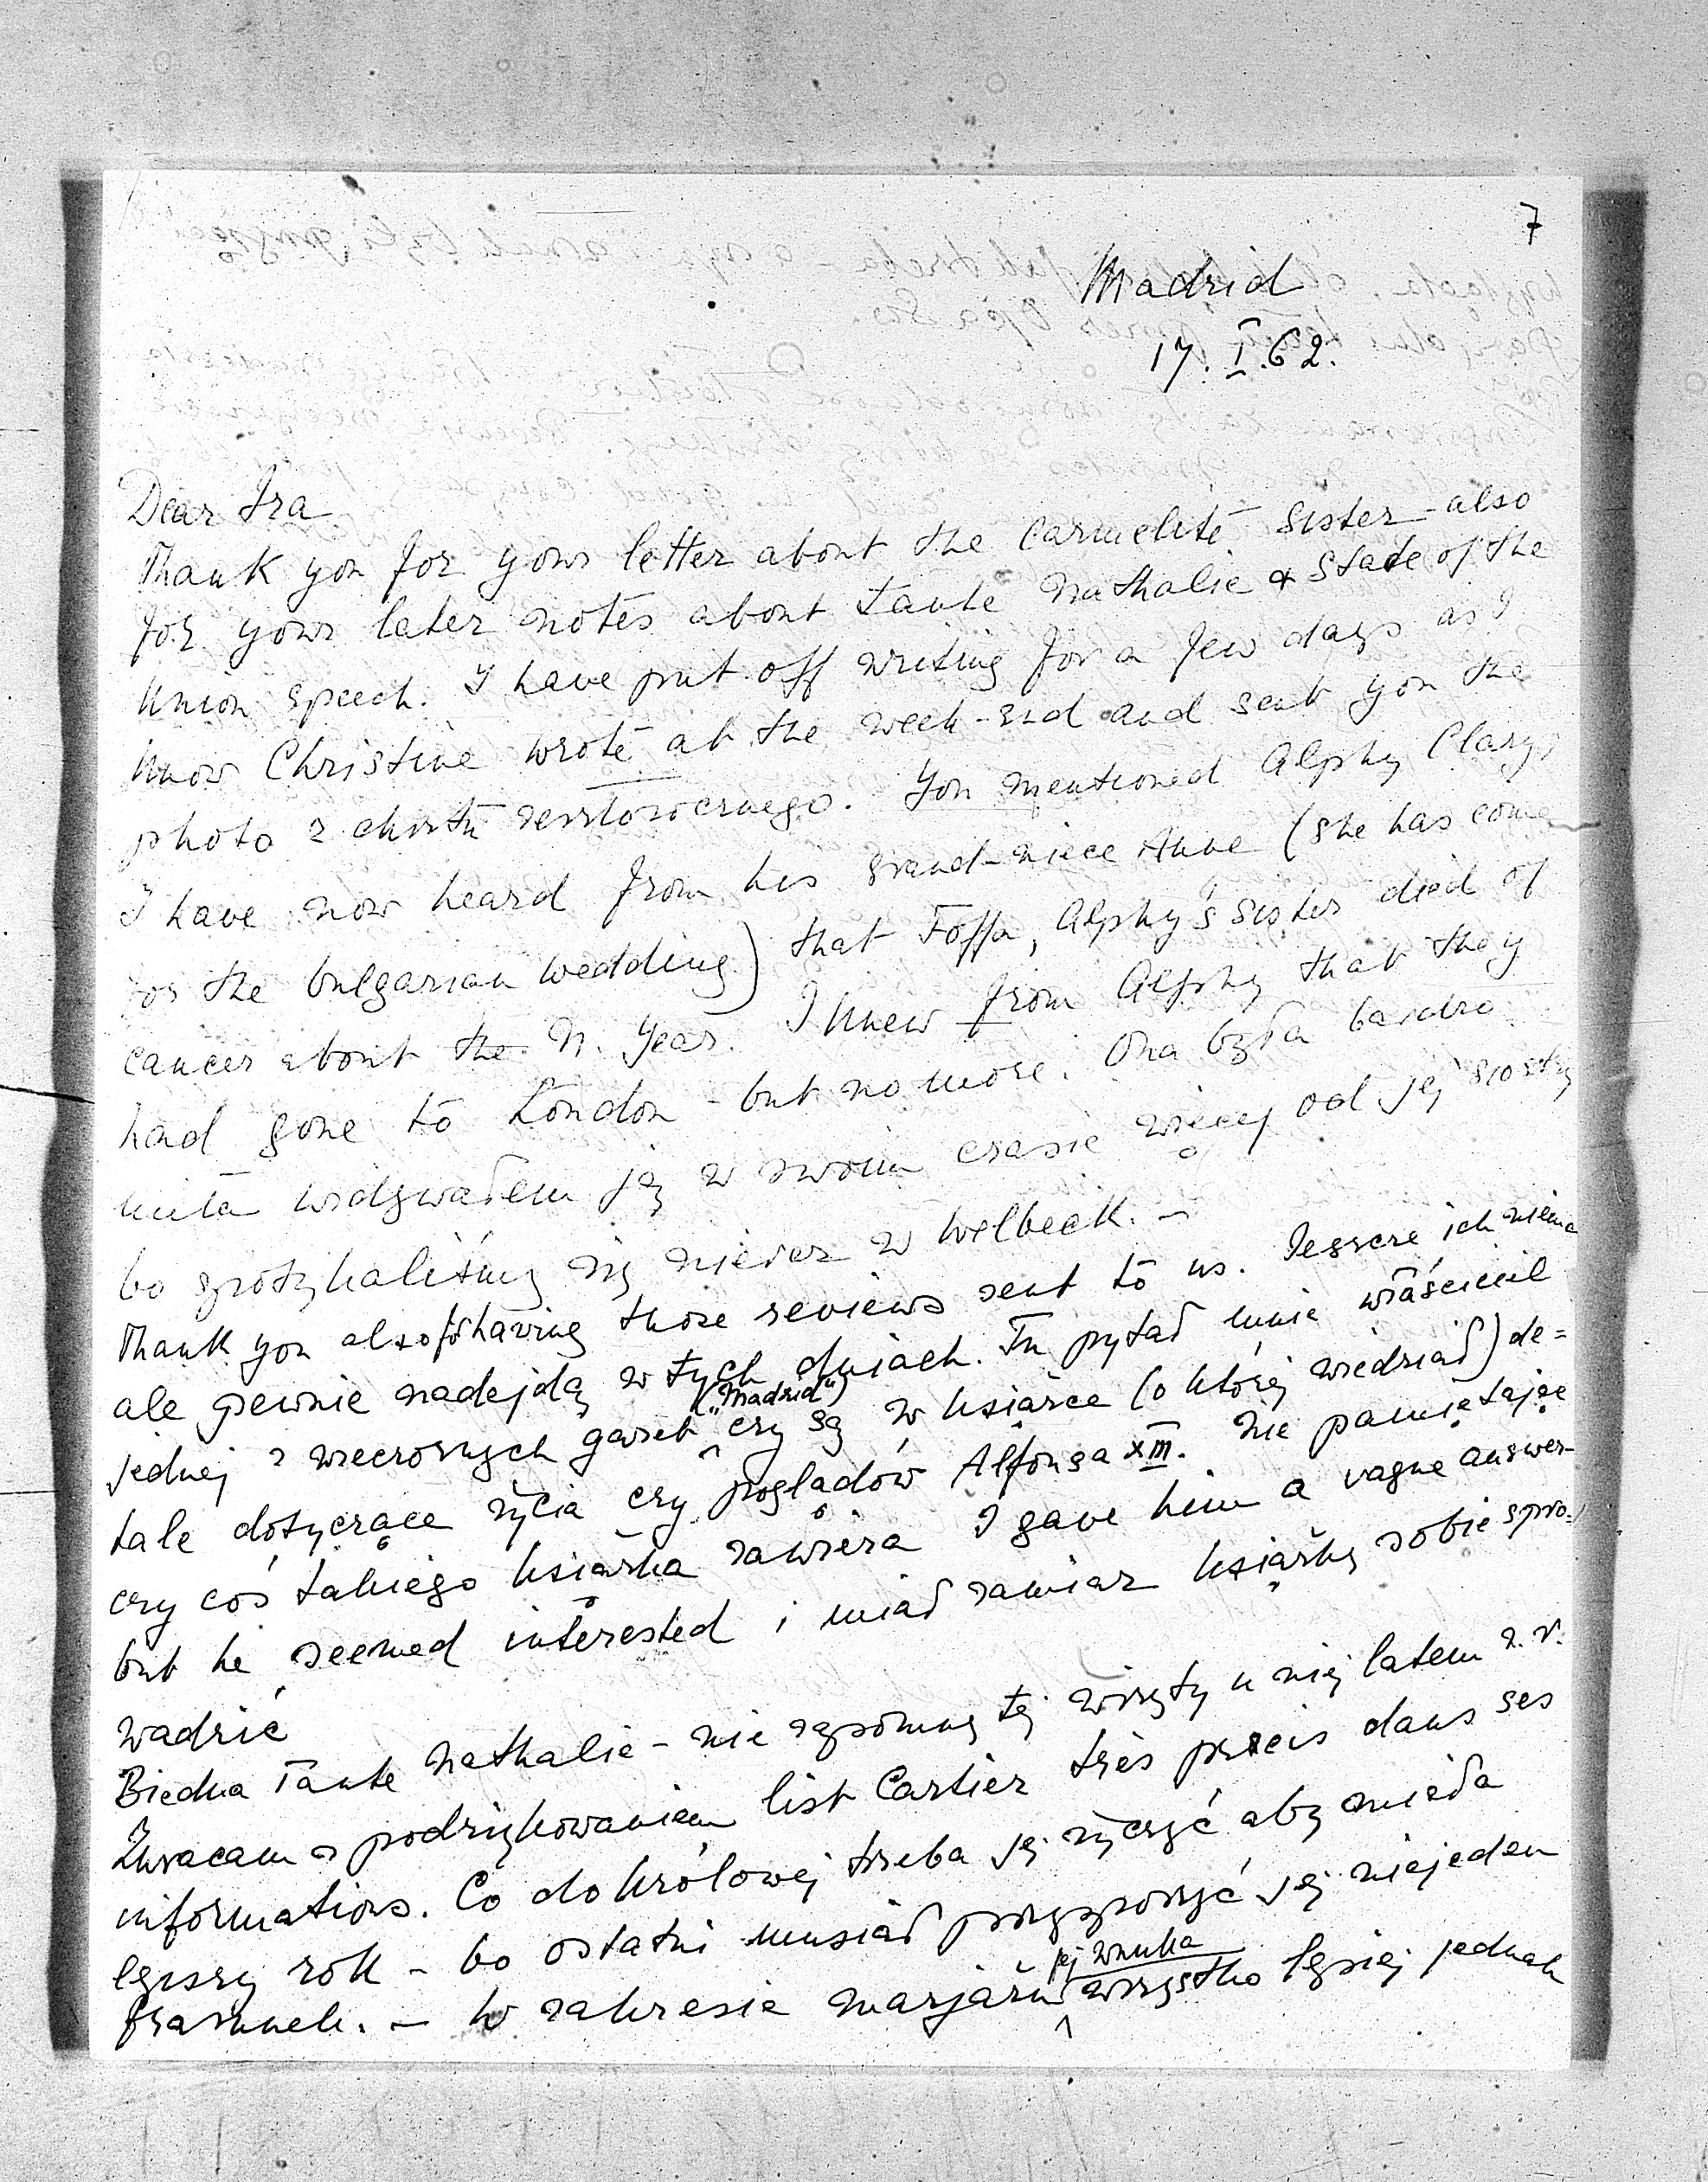 7
Madrid
17. I. 62.
Dear Ira
Thank you for your letter about the Carmelite sister - also
for your later notes about Tante Nathalie & State of the
Union speech. I have put off writing for a few days as I
know Christine wrote at the week-end and sent you the
photo z chrztu zeszłorocznego. You mentioned Alphy Clary,
I have now heard from his grand-niece Anne (she has come
for the bulgarian wedding) that Foffa, Alphy's sister died of
cancer about the N. Year. I knew from Alphy that they
had gone to London - but no more. Ona była bardzo
miła widywałem ją w swoim czasie więcej od jej siostry
bo spotykaliśmy się nieraz w Welbeck. -
Thank you also for having those reviews sent to us. Jeszcze ich niema
ale pewnie nadejdą w tych dniach. Tu pytał mnie właściciel
jednej z wieczornych gazet ("Madrid") czy są w książce (o której wiedział) de=
tale dotyczące życia czy poglądów Alfonsa XIII. Nie pamiętając
czy coś takiego książka zawiera I gave him a vague answer-
but he seemed interested i miał zamiar książkę sobie spro=
wadzić
Biedna Tante Nathalie - nie zapomnę tej wizyty u niej latem z. r.
Zwracam z podziękowaniem list Cartier très précis dans ses
informations. Co do królowej trzeba jej życzyć aby miała
lepszy rok - bo ostatni musiał przysporzyć jej niejeden
frasunek. - W zakresie marjażu jej wnuka wszystko lepiej jednak